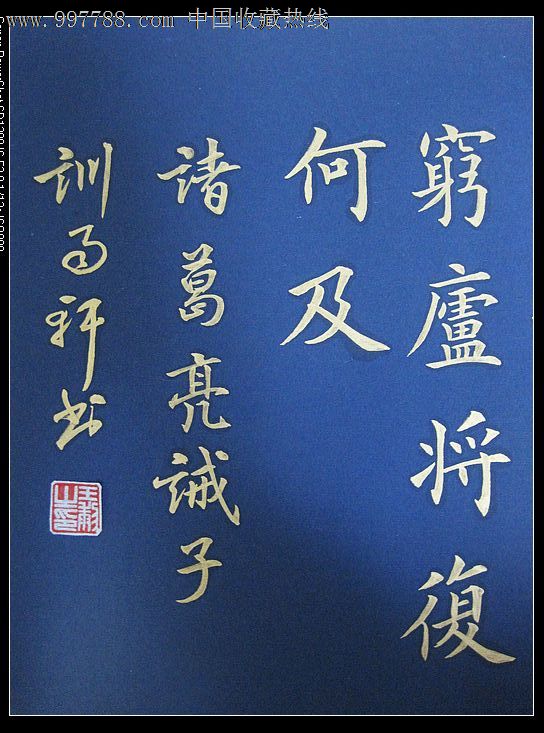 www.997788.com 中国收藏热线
窮廬將復
何及
諸葛亮誡子
訓
書